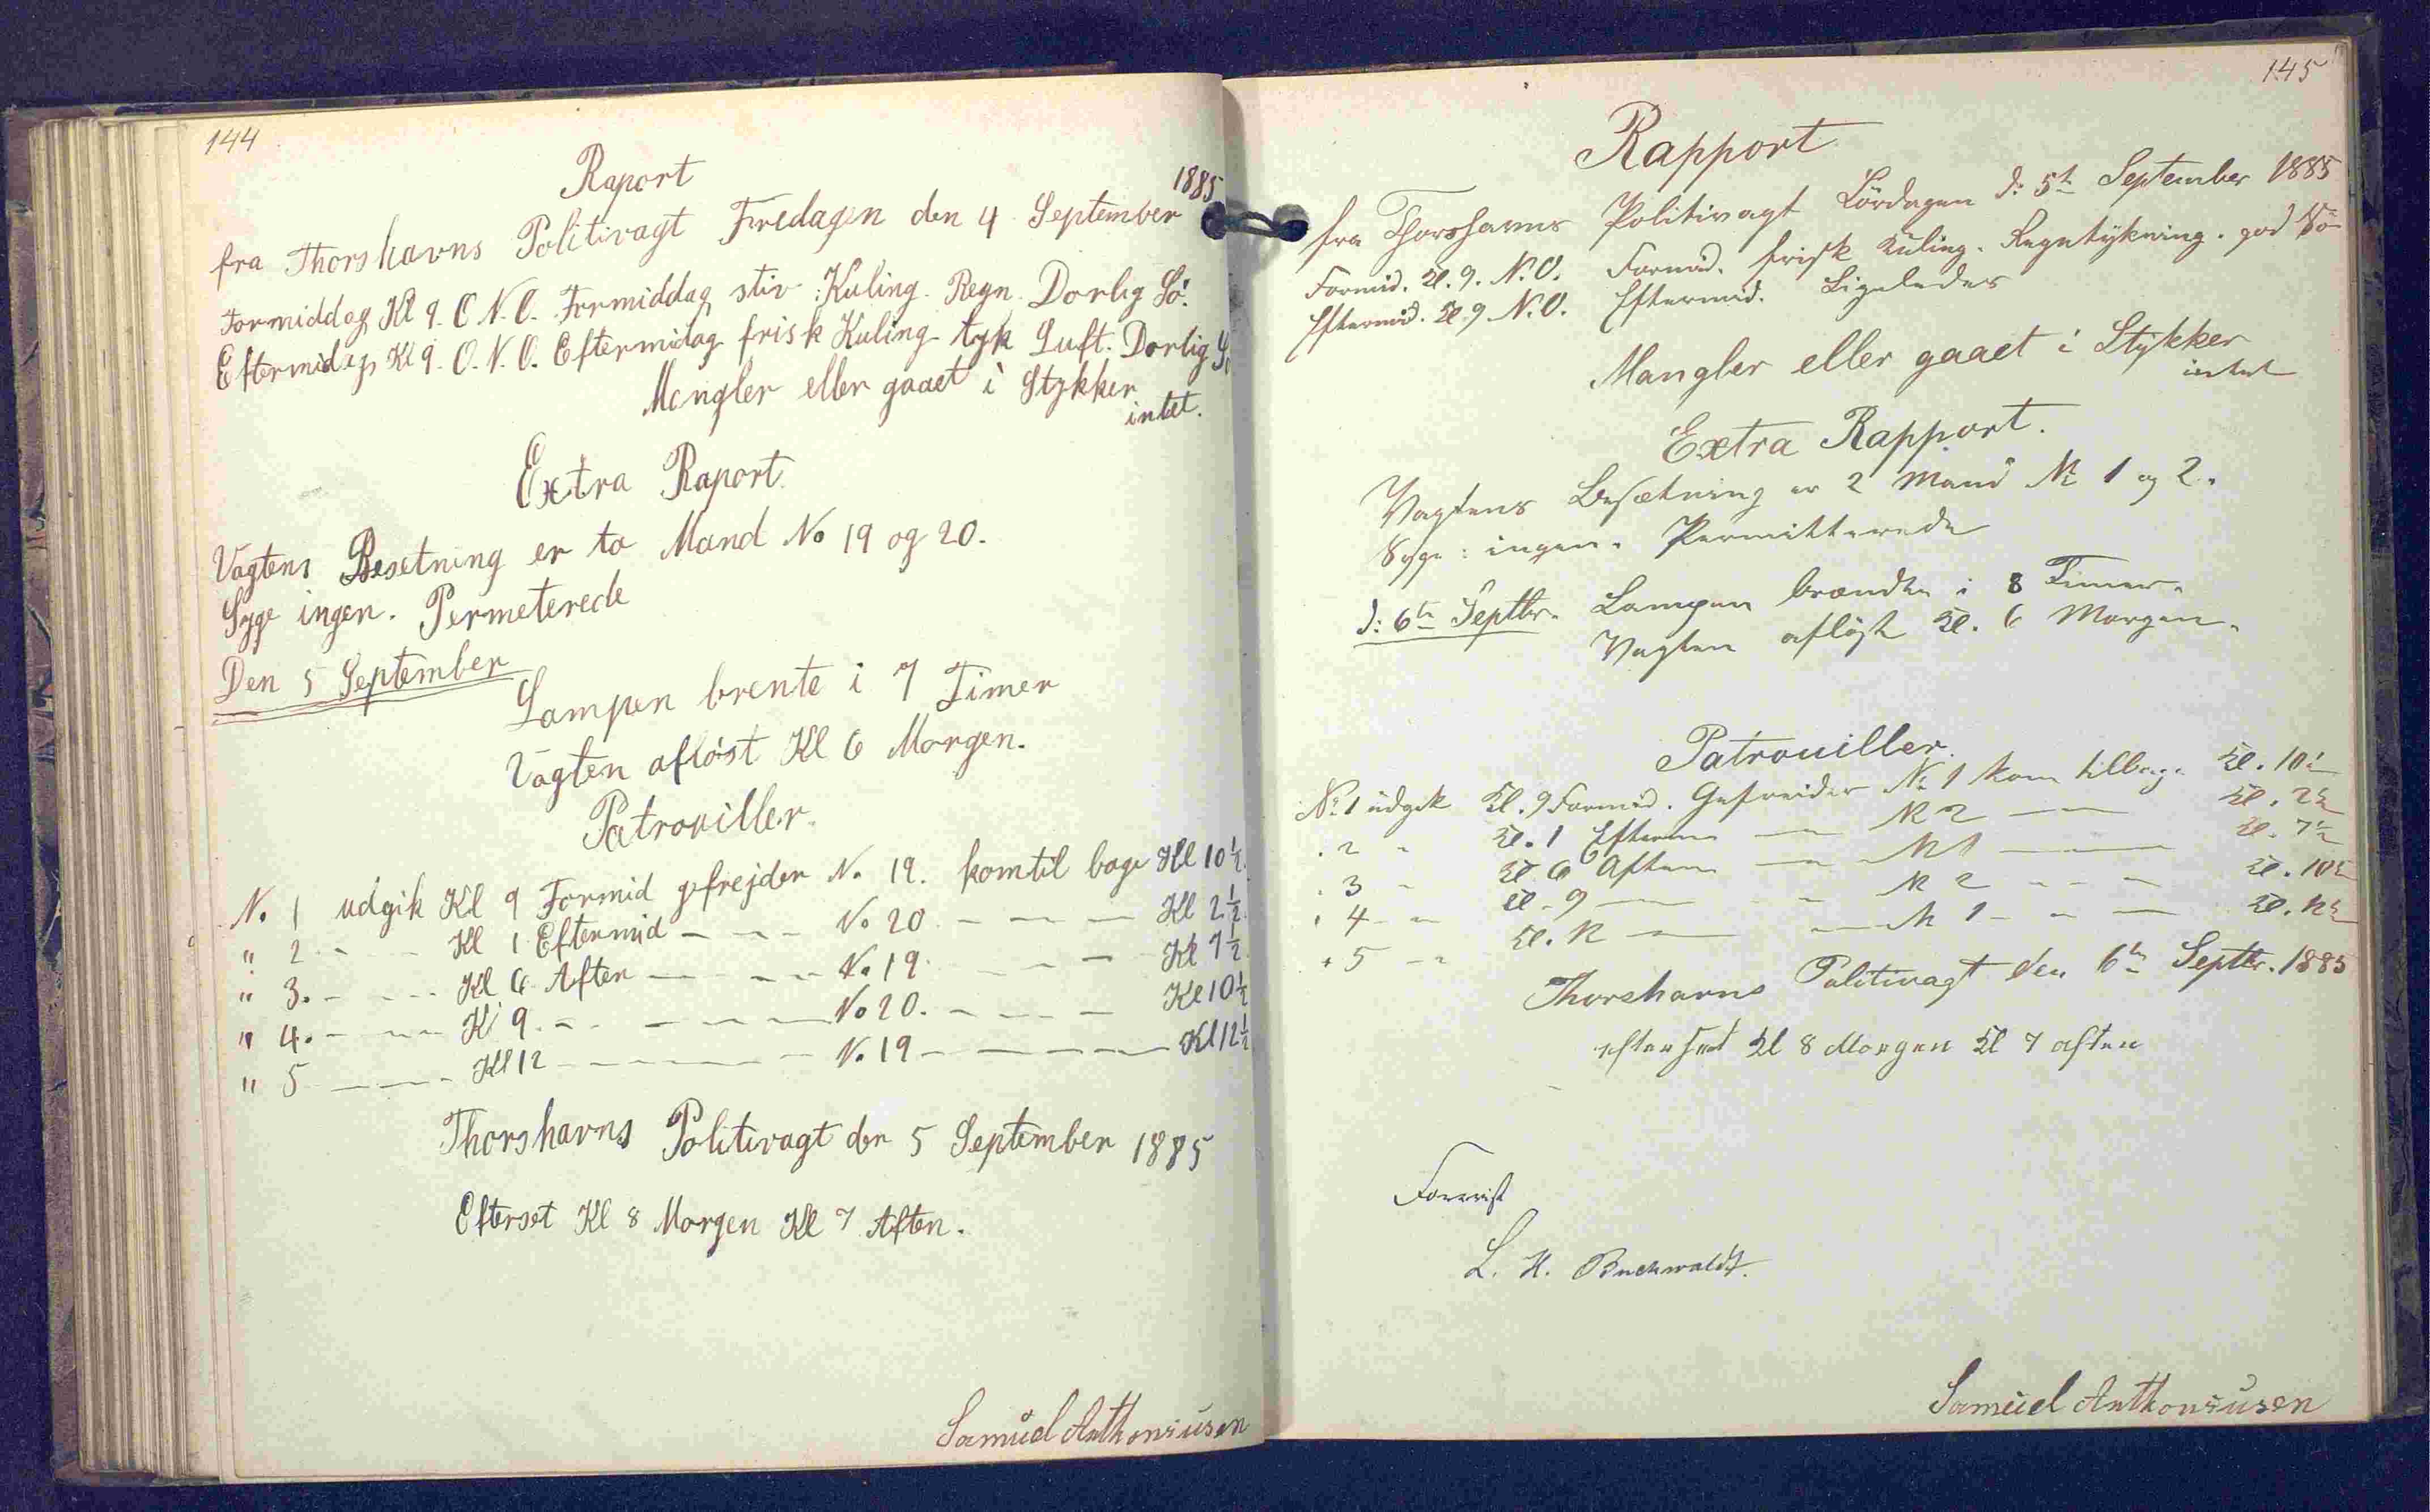 144
Raport
1885
fra Thorshavns Politivagt Fredagen den 4 September
Formiddag Kl 9. O. N. O. Formiddag stiv Kuling. Regn. Dorlig Sö.
Eftermidag Kl 9. O. N. O. Eftermidag frisk Kuling tyk Luft. Dorlig
Mangler eller gaaet i Stykker
intet.
Extra Raport
Vagtens Besetning er to Mand No 19 og 20.
Syge ingen. Permeterede
Den 5 September
Lampen brente i 7 Timer
Vagten afløst Kl 6 Morgen.
Patrouiller.
No 1 udgik Kl 9 Formid gefrejder No 19. kom til bage Kl 10½
" 2 - - Kl 1 Eftermid - - - No 20 - - - Kl 2½
" 3. - - - Kl 6 Aften - - - No 19 - - - Kl 7½
" 4. - - - Kl 9. - - - No 20. - - - Kl 10½
" 5 - - - Kl 12 - - - No 19 - - - Kl 12½
Thorshavns Politivagt den 5 September 1885
Efterset Kl 8 Morgen Kl 7 Aften.
Samuel Anthoniusen
145
Rapport
fra Thorshavns Politivagt Lördagen d: 5te September 1885
Formid. Kl. 9. N. O. Formid. frisk Kuling. Regntykning. god Sö
Eftermid. Kl. 9 N. O. Eftermid. Ligeledes
Mangler eller gaaet i Stykker
intet
Extra Rapport.
Vagtens Besætning er 2 Mand No 1 og 2.
Syge: ingen. Permitterede
d: 6te Septbr. Lampen brændte i 8 Timer.
Vagten aflöst Kl. 6 Morgen.
Patrouiller.
No 1 udgik Kl. 9 Formid. Gefreider No 1 kom tilbage Kl. 10½
" 2 " Kl. 1 Efterm — No 2 — Kl. 2½
" 3 " Kl. 6 Aften — No 1 — Kl. 7½
" 4 - " Kl. 9 — No 2 - - - Kl. 10½
" 5 - " Kl. 12 — No 1 - - — Kl. 12½
Thorshavns Politivagt den 6te Septbr. 1885
efterset Kl 8 Morgen Kl 7 aften
Forevist
L. H. Buchwaldt.
Samuel Anthoniusen